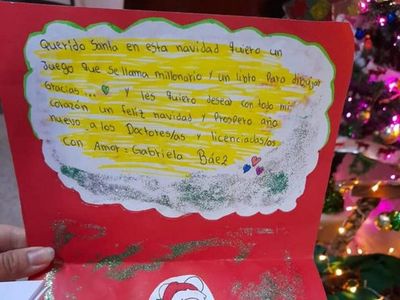 Querido Santa en esta navidad quiero un
Juego que se llama millonario y un libto para dibujar
Gracias... y les quiero desear con todo mi
corazón un feliz navidad y Prospero año
nuevo a los Doctores/as y licenciados/as
con Amor: Gabriela Báez